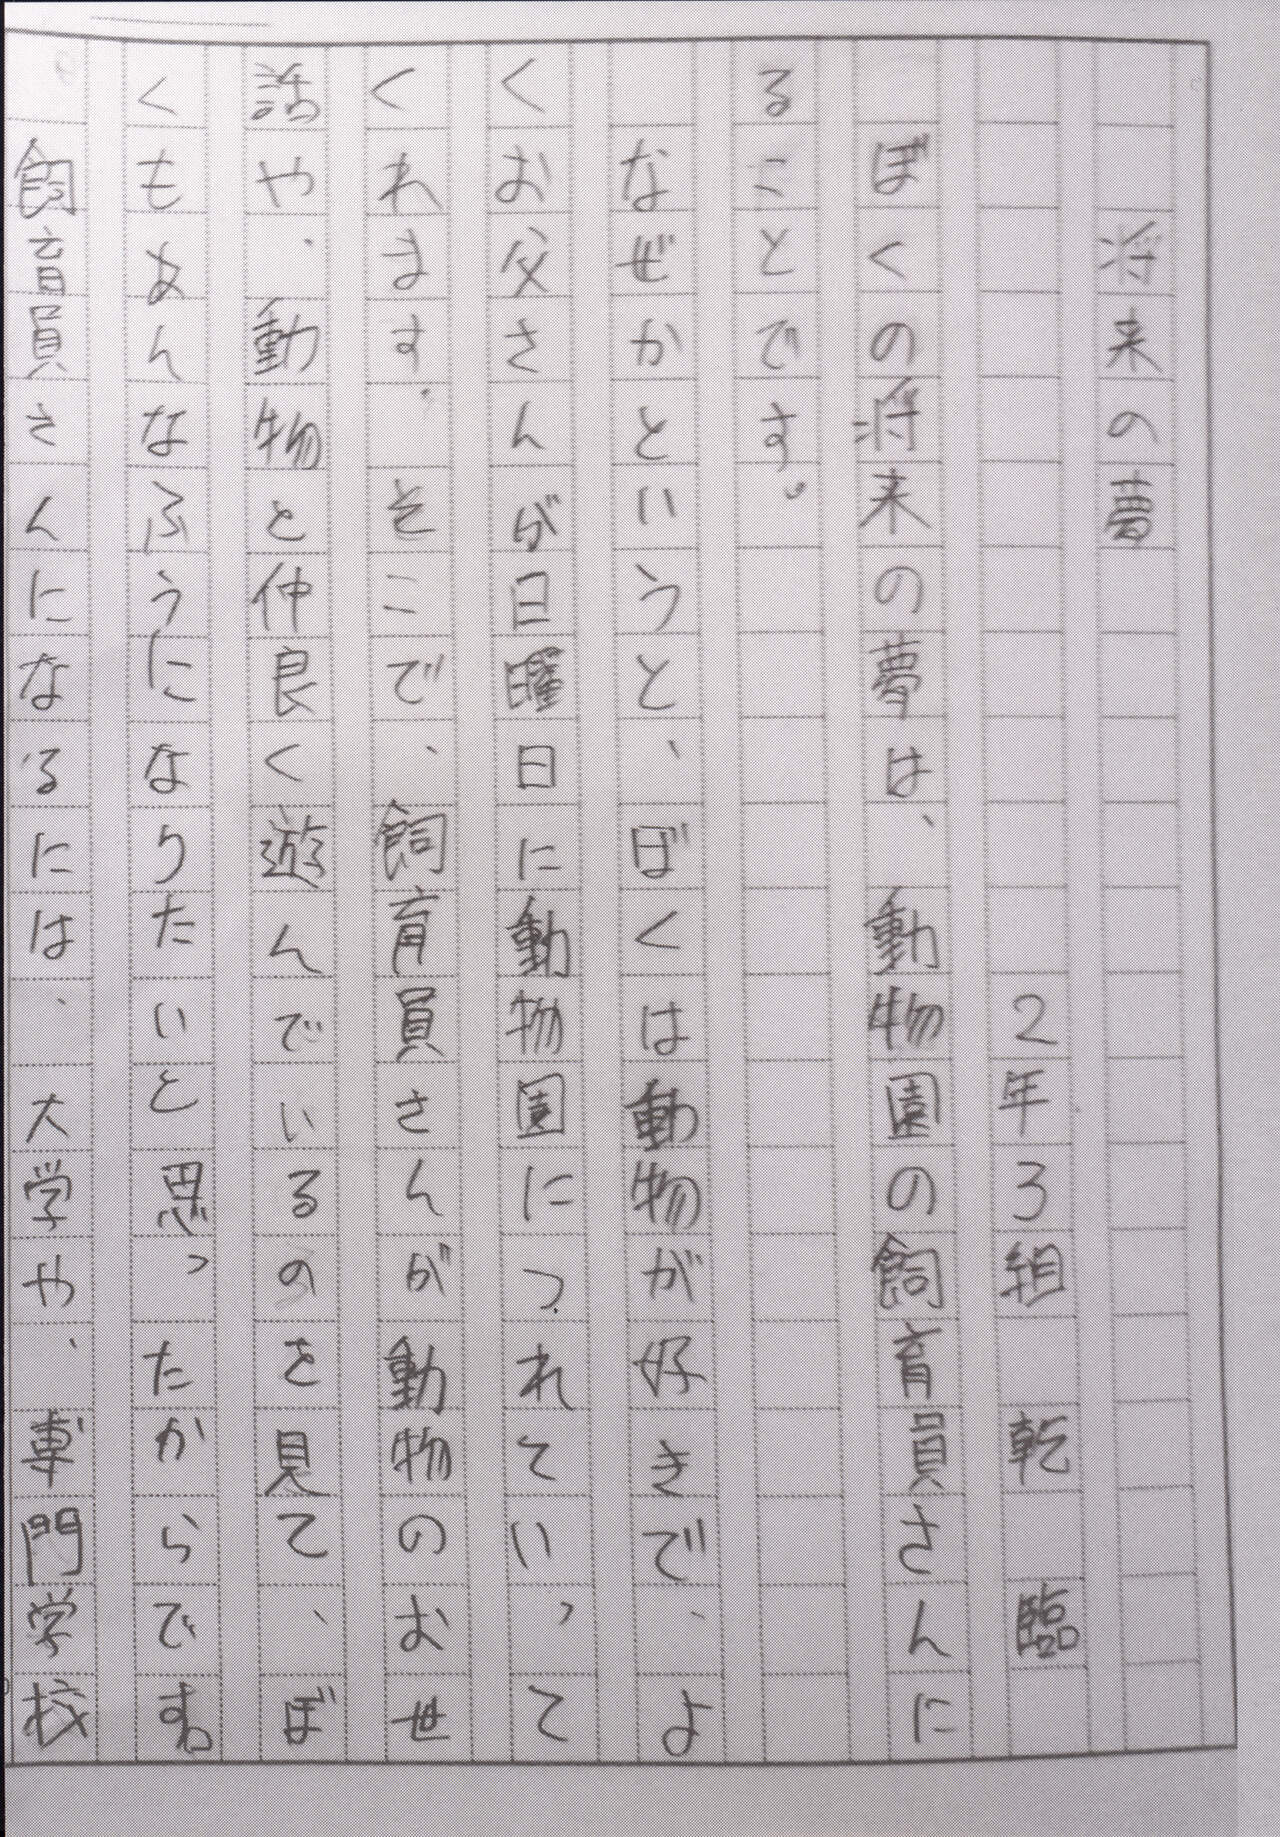 将来の夢
2年3組 乾 臨
ぼくの将来の夢は、動物園の飼育員さんに
ることです。
なぜかというと、ぼくは動物が好きで、よ
くお父さんが日曜日に動物園につれていって
くれます。そこで、飼育員さんが動物のお世
話や、動物と仲良く遊んでいるのを見て、ぼ
くもあんなふうになりたいと思ったからです。
飼育員さんになるには、大学や、専門学校